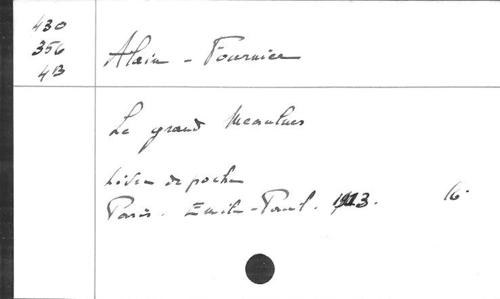 430
356
4B
Alain - Fournier
Le grand Meaulnes
Livre de poche
Paris. Emile-Paul. 1913. 16.